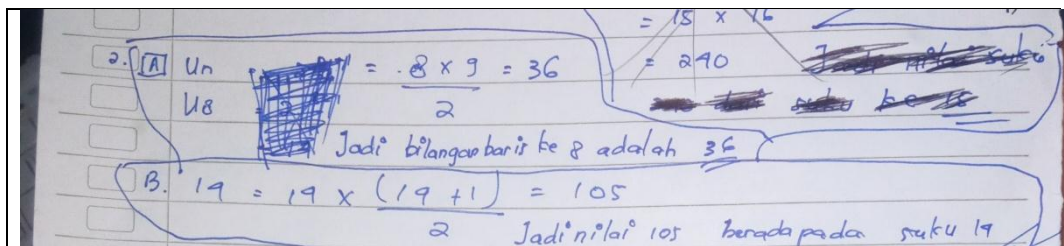 = 15 x 16
2. A Un = 8 x 9 = 36
2
= 240
U8
Jadi bilangan baris ke 8 adalah 36
B. 14 = 14 x (14 +1) = 105
2
Jadi nilai 105 berada pada suku 14